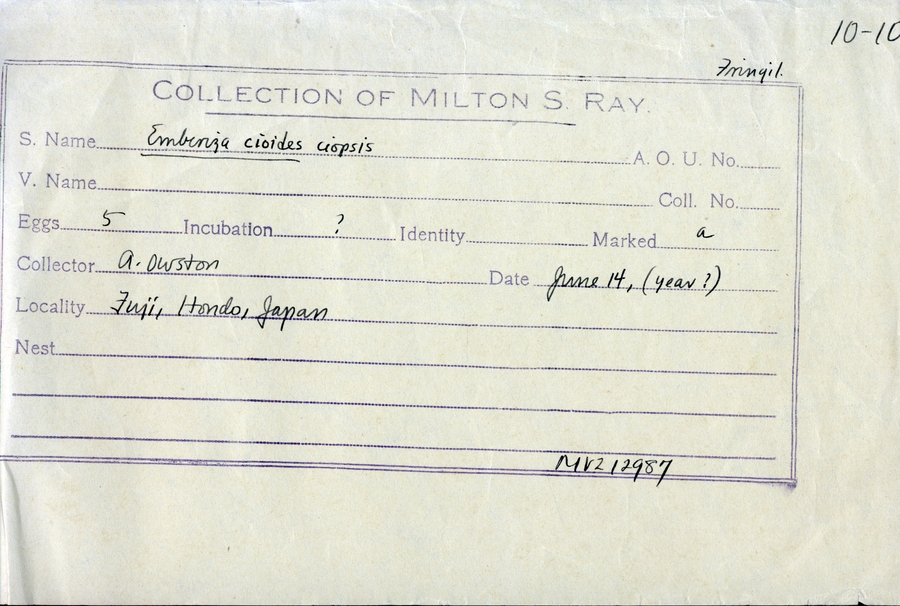 10-10
Fringil.
COLLECTION OF MILTON S. RAY.
S. Name Emberiza cioides ciopsis A. O. U. No.
V. Name Coll. No.
Eggs 5 Incubation ? Identity Marked a
Collector A. Owston Date June 14, (year?)
Locality Fuji, Hondo, Japan
Nest
MVZ 12987